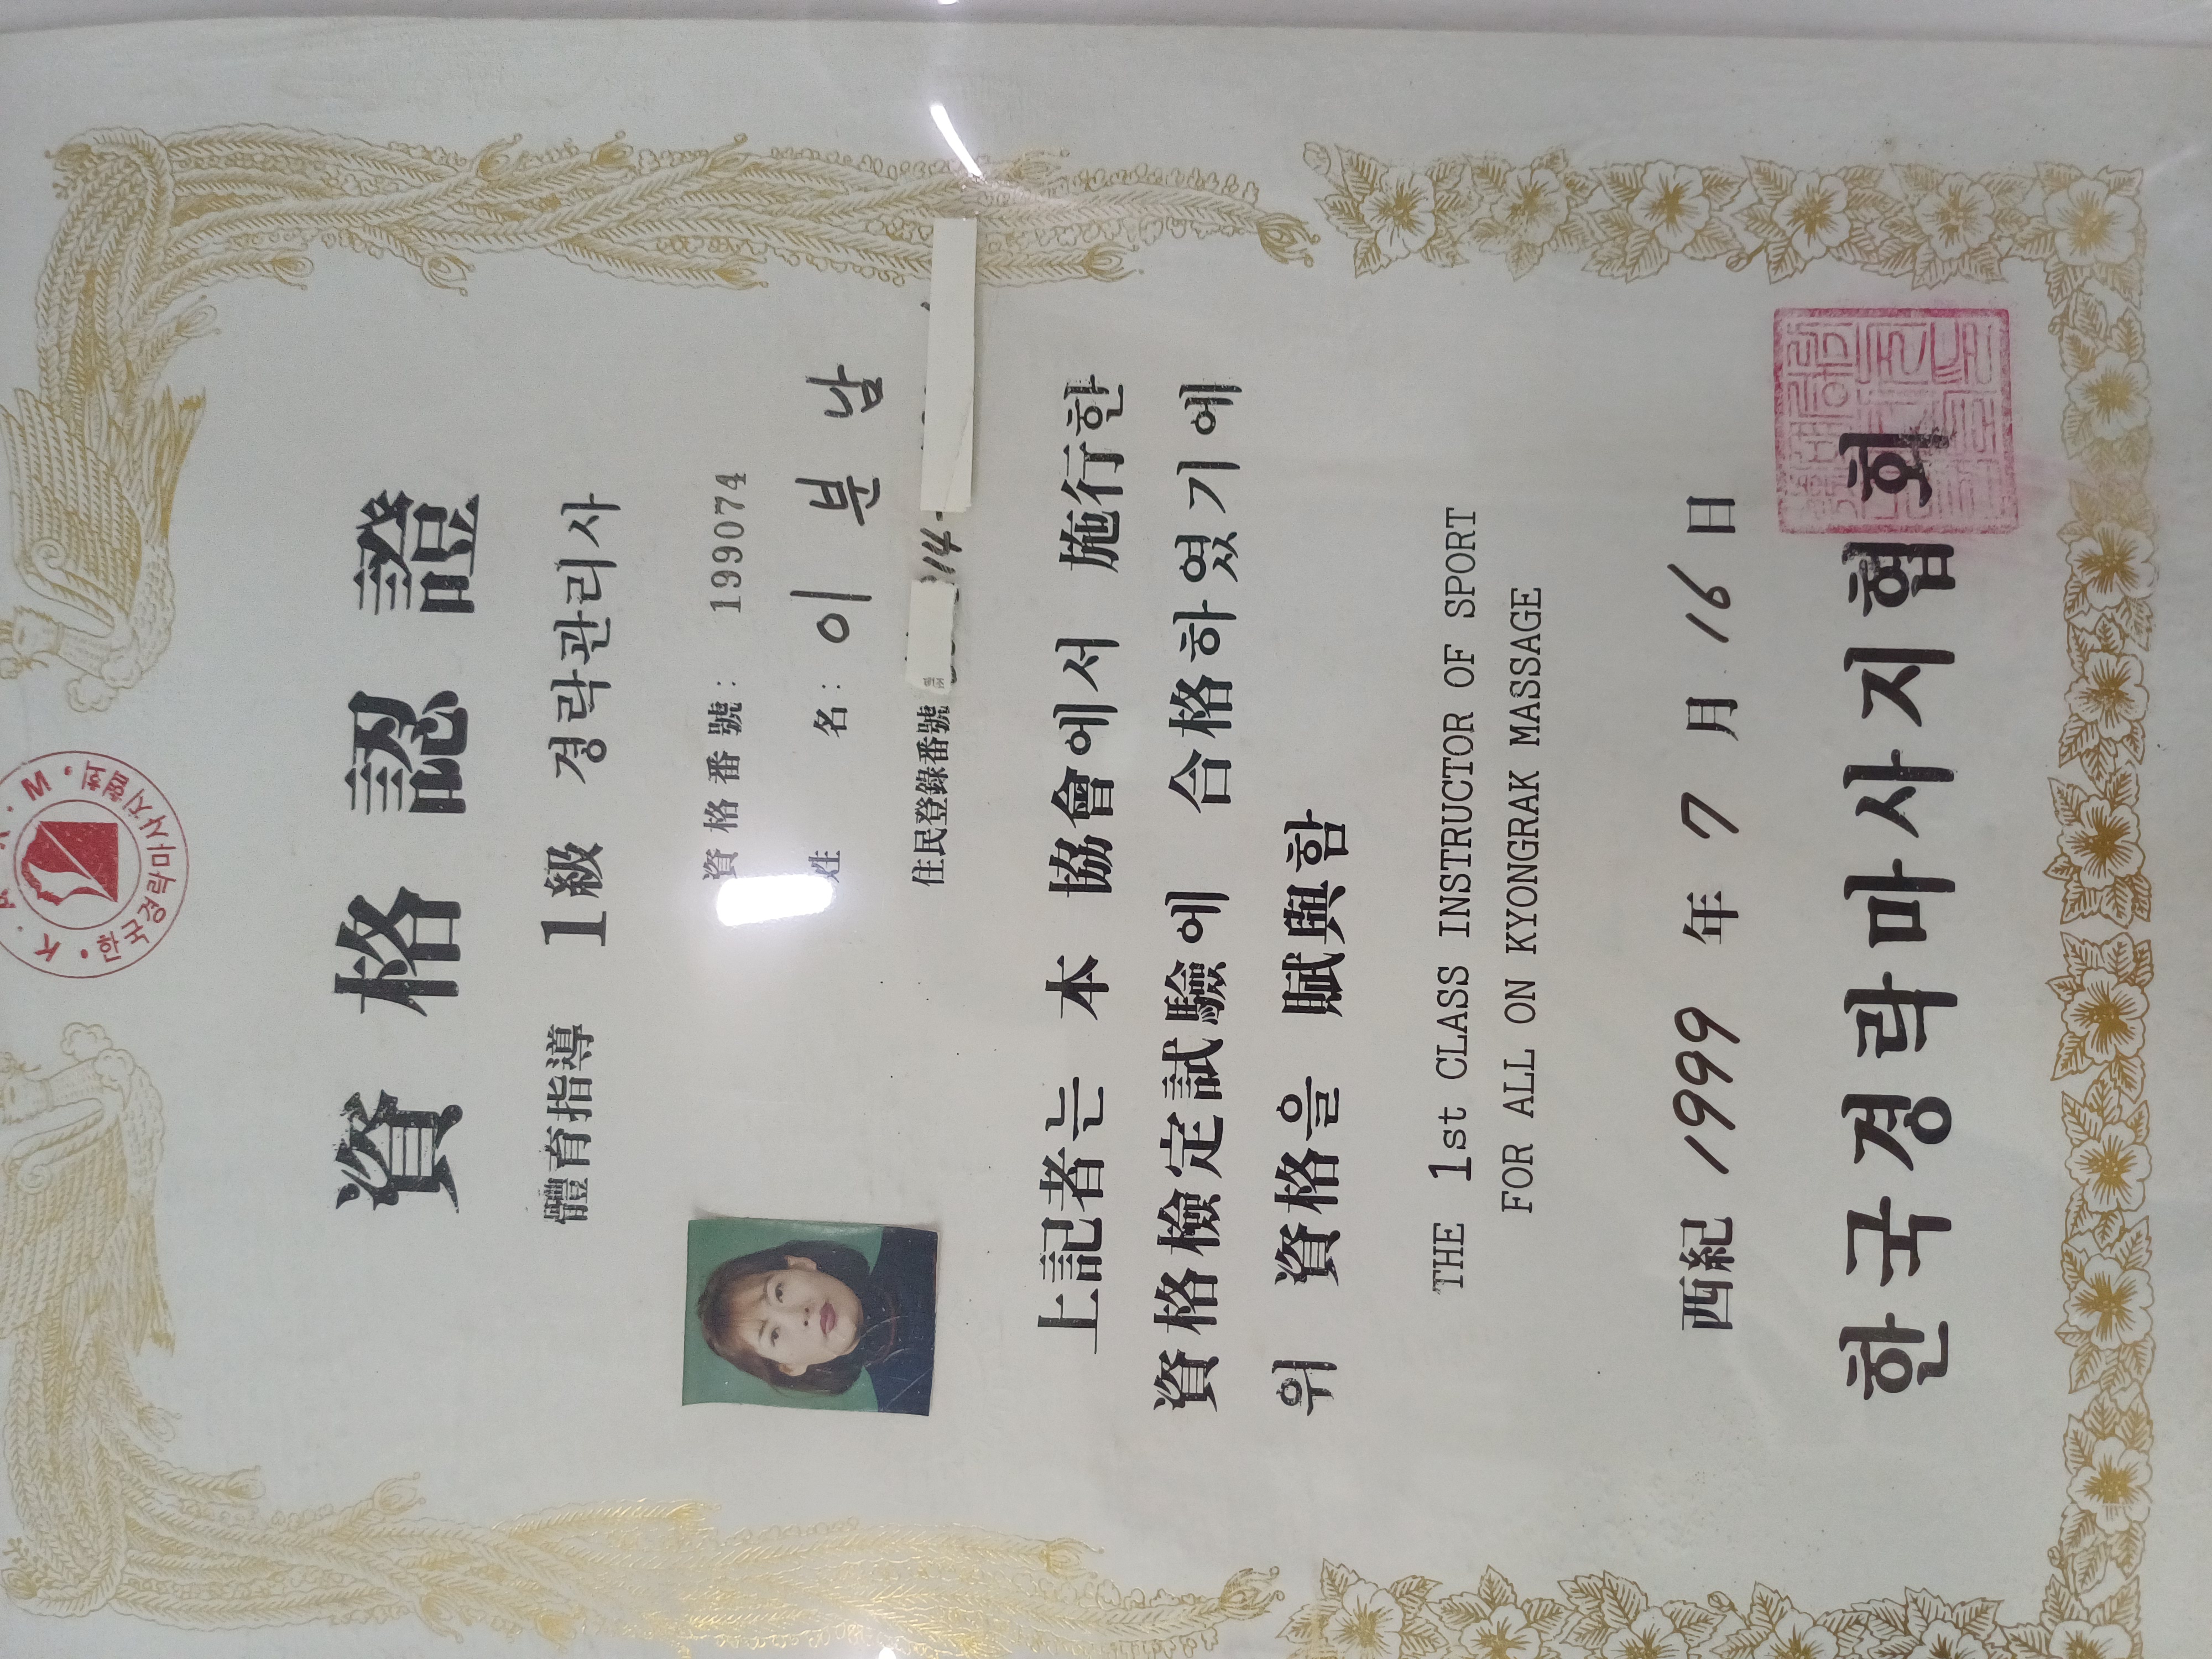 한국경락마사지협회
資格認證
體育指導 1級 경락관리사
資格番號: 199074
姓 名: 이분남
住民登錄番號 14-
上記者는 本 協會에서 施行한
資格檢定試驗에 合格하였기에
위 資格을 賦與함
THE 1st CLASS INSTRUCTOR OF SPORT
FOR ALL ON KYONGRAK MASSAGE
西紀 1999 年 7 月 16 日
한국경락마사지협회